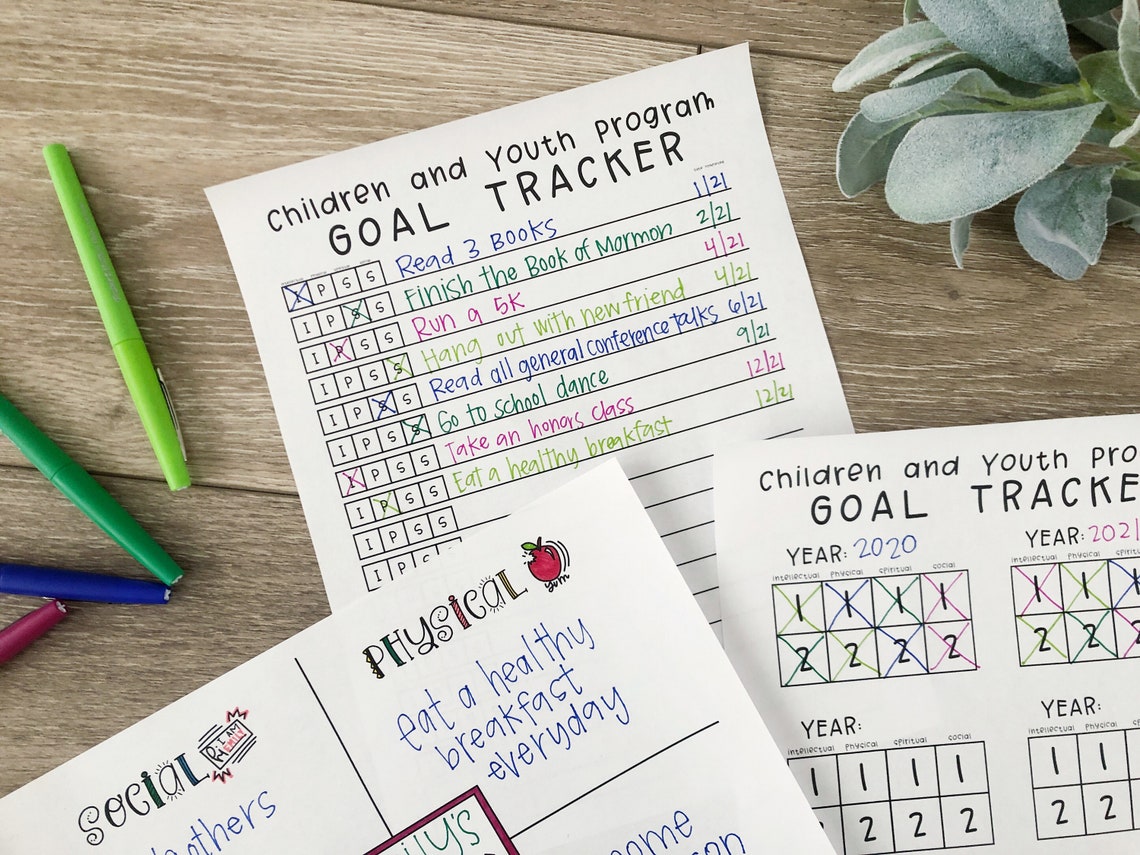 Children and Youth Program
GOAL TRACKER
X P S S Read 3 Books 1/21
I P S S Finish the Book of Mormon 2/21
I P S S Run a 5K 4/21
I P S S Hang out with new friend 4/21
I P S S Read all general conference talks 6/21
I P S S Go to school dance 9/21
I P S S Take an honors class 12/21
I P S S Eat a healthy breakfast 12/21
I P S S
I P S
Children and Youth Pro
GOAL TRACKE
YEAR: 2020 YEAR: 2021
intellectual physical spiritual social intellectual physical spiritual
1 1 1 1 1 1 1
2 2 2 2 2 2 2
YEAR: YEAR:
intellectual physical spiritual social intellectual physical spiritual
1 1 1 1 1 1
2 2 2 2 2
PHYSICAL yum
eat a healthy
breakfast
everyday
SOCIAL HI I AM EMILY
others
ily's
ome
son